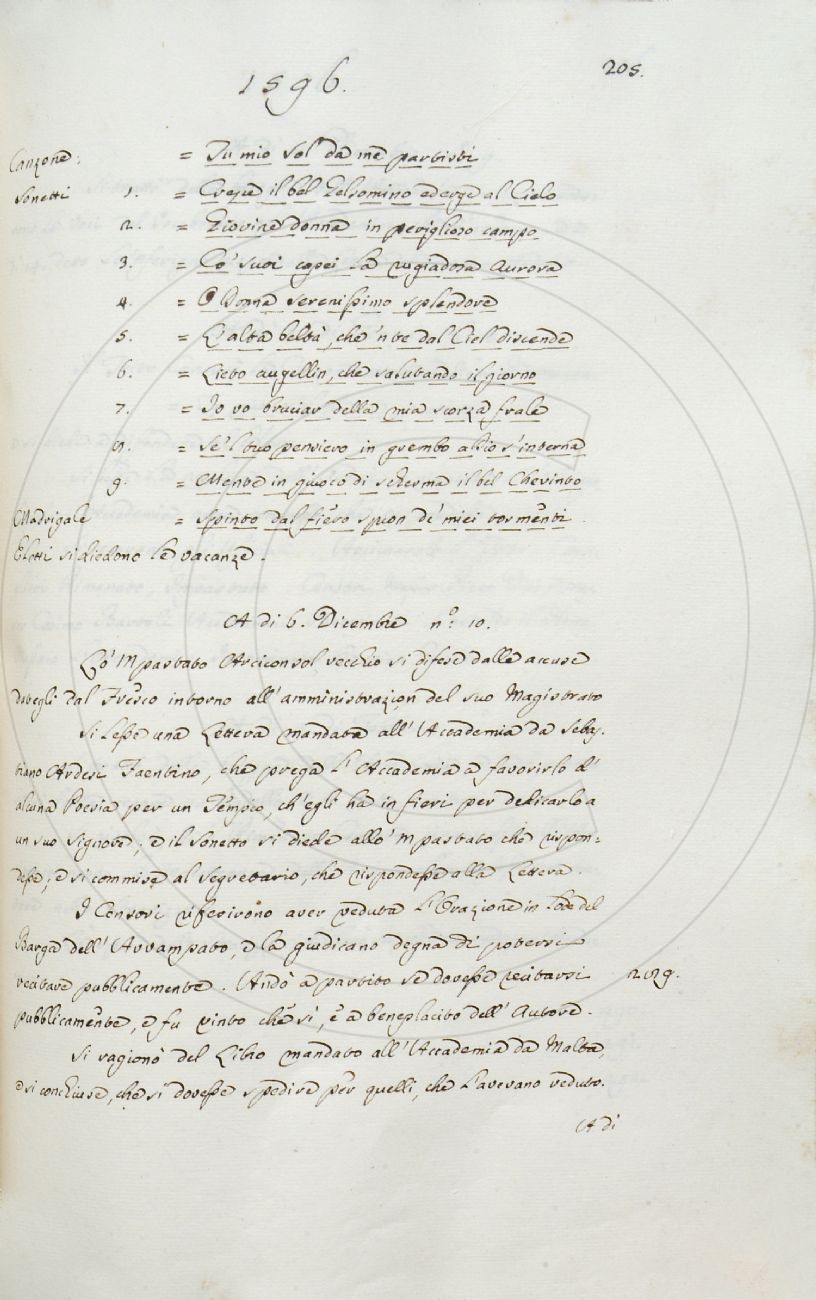 1596.
205.
Canzone: = Tu mio sol da me partisti
Sonetti 1. = Cresce il bel Gelsomino ed erge al Cielo
2. = Giovine donna in periglioso campo
3. = Co' suoi capei la rugiadosa Aurora
4. = O Donna serenissimo splendore
5. = L'alta beltà, che 'n te dal Ciel discende
6. = Lieto augellin, che salutando il giorno
7. = Io vo bruciar della mia scorza frale
8. = Se 'l tuo pensiero in grembo a Dio s'interna
9. = Mentre in giuoco di scherma il bel Cherinto
Madrigale = Spinto dal fiero spron de' miei tormenti
E letti si diedono le vacanze.
A di 6. Dicembre n.° 10.
Lo 'Mpastato Arciconsol vecchio si difese dalle accuse
dategli dal Fresco intorno all'amministrazion del suo Magistrato
Si lesse una Lettera mandata all'Accademia da Sebas,
tiano Ardesi Faentino, che prega l'Accademia a favorirlo d'
alcuna Poesia per un Tempio, ch'egli ha in fieri per dedicarlo a
un suo Signore; e il Sonetto si diede allo 'Mpastato che rispon=
desse; e si commise al Segretario, che rispondesse alla Lettera.
I Censori riferirono aver veduta l'Orazione in lode del
Barga dell'Avvampato, e la giudicano degna di potersi
recitare pubblicamente. Andò a partito se dovesse recitarsi
2189.
pubblicamente, e fu vinto che sì, e a beneplacito dell'Autore.
Si ragionò del Libro mandato all'Accademia da Malta,
e si conchiuse, che si dovesse spedire per quelli, che l'avevano veduto.
A di